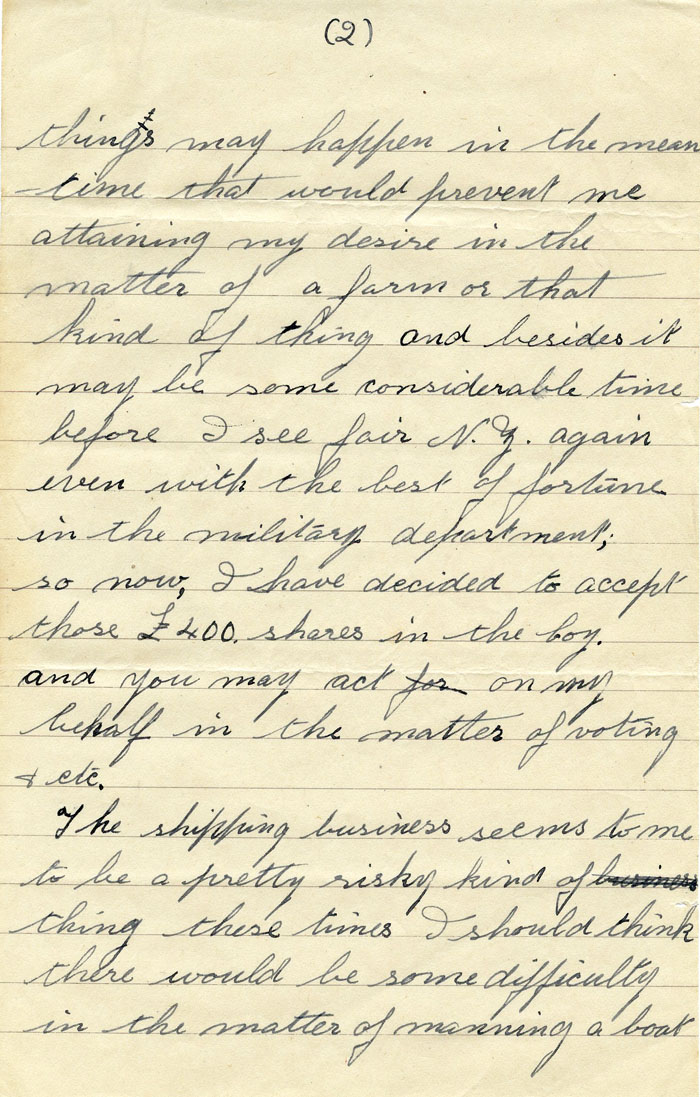 (2)
things may happen in the mean
time that would prevent me
attaining my desire in the
matter of a farm or that
kind of thing and besides it
may be some considerable time
before I see fair N.Z. again
even with the best of fortune
in the military department;
so now, I have decided to accept
those £400. shares in the Coy.
and you may act for on my
behalf in the matter of voting
& etc.
The shipping business seems to me
to be a pretty risky kind of business
thing these times I should think
there would be some difficulty
in the matter of manning a boat